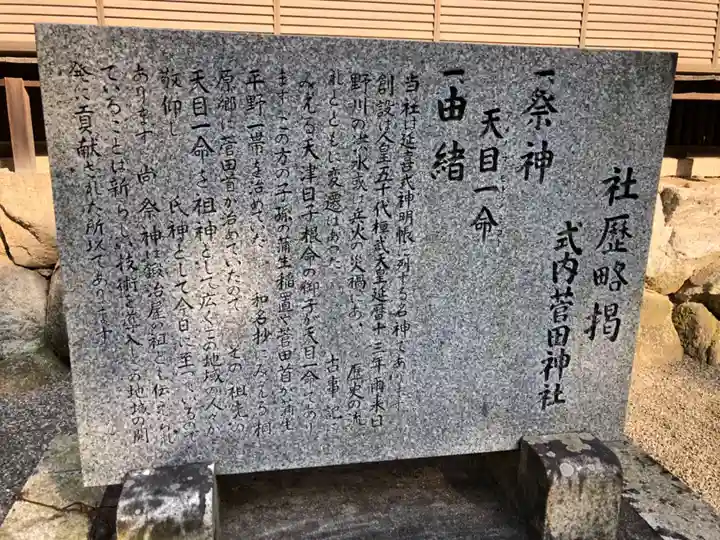 社歴略掲
式内菅田神社
一祭神
天目一命
一由緒
当社は延喜式神明帳に列する名神であります
創設は人皇五十代桓武天皇延暦十三年雨来日
野川の洪水或は兵火の災禍にあい 歴史の流
れとともに変遷はあった 古事記に
みえる天津日子根命の御子が天目一命であり
ます この方の子孫の蒲生稲置 菅田首が蒲生
平野一帯を治めていた 和名抄にみえる桐
原郷は菅田首が治めていたので その祖先の
天目一命を祖神として広くこの地域の人々が
敬仰し 氏神として今日に至っているので
あります 尚祭神は鍛冶屋の祖とも伝えられ
ていることは新らしい技術を導入しこの地域の開
発に貢献された所以であります